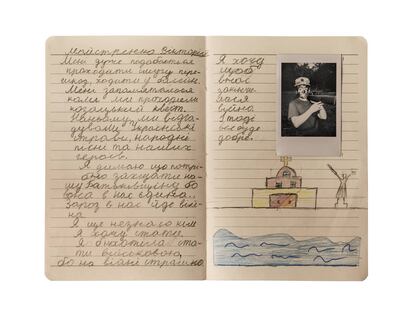 Майстренко Вікторія
Мені дуже подобається
проходити смугу пере-
шкод, ходити у басейн.
Мені запам'яталося
коли ми проходили
козацький квест.
Нанашу, ми відга-
дували Українські
страви, народні
пісні та наших
героїв.
Я думаю що потрі-
бно захищати на-
шу Батьківщину бо
вона в нас єдина.
Зараз в нас йде вій-
на.
Я ще не знаю ким
Я хочу стати.
Я б не хотіла ста-
ти військовою,
бо на війні страшно
Я хочу
щоб
в нас
закінчи-
лася
війна
і тоді
все буде
добре.